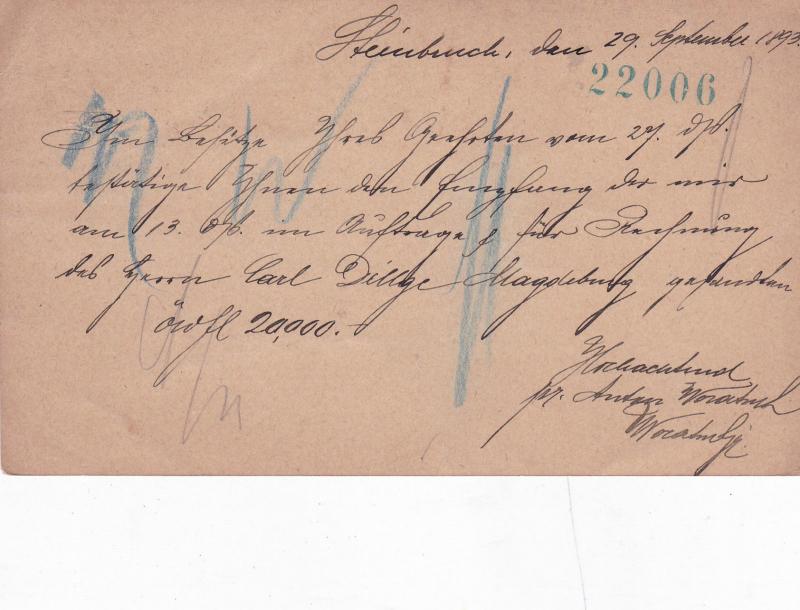 Steinbruch, den 29. September 1893.
22006
Im Besitze Ihres Geehrten vom 27. ds.
bestätige Ihnen den Empfang der mir
am 13. ds. im Auftrage & für Rechnung
des Herrn Carl Dillge Magdeburg gesandten
öwfl 20,000.-
Hochachtend
pr. Anton